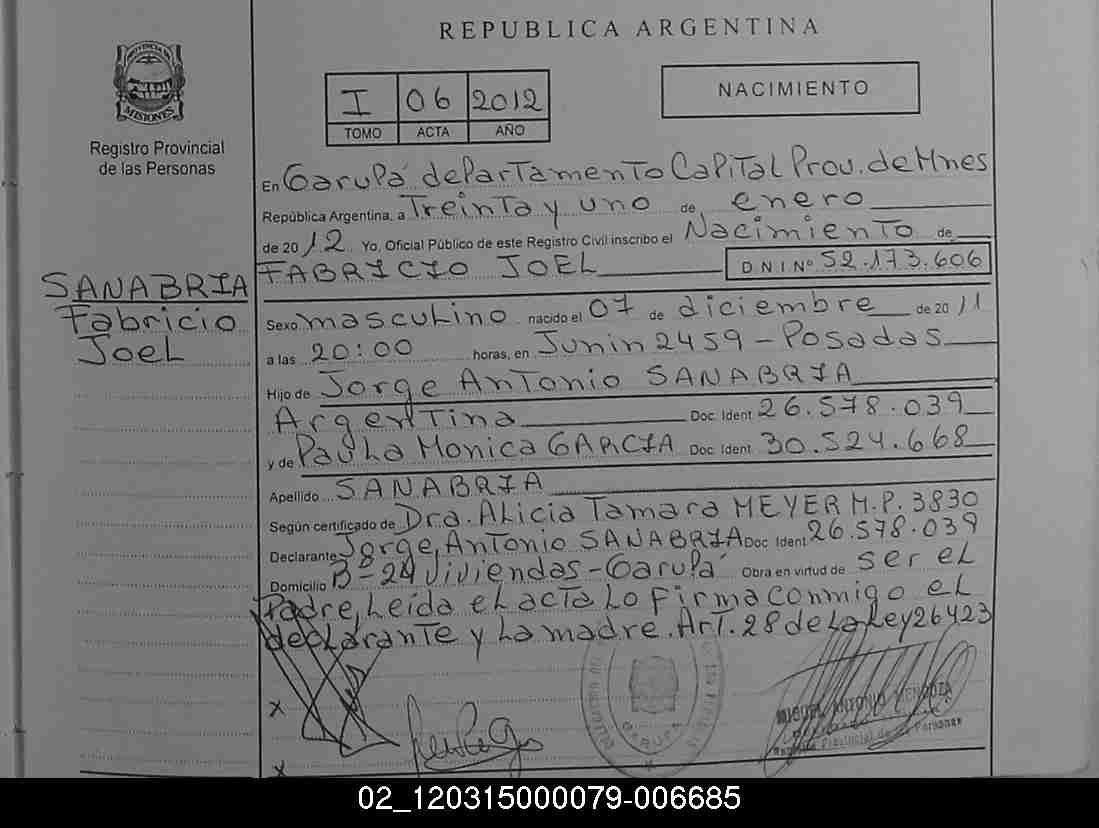 REPUBLICA ARGENTINA
PROVINCIA DE
MISIONES
Registro Provincial
de las Personas
I 06 2012
TOMO ACTA AÑO
NACIMIENTO
En Garupá departamento Capital Prov. de Mnes
República Argentina, a Treinta y uno de enero
de 2012 Yo, Oficial Público de este Registro Civil inscribo el Nacimiento de
FABRICIO JOEL DNI Nº 52.173.606
SANABRIA
Fabricio
Joel
Sexo masculino nacido el 07 de diciembre de 2011
a las 20:00 horas, en Junin 2459 - Posadas
Hijo de Jorge Antonio SANABRIA
Argentina Doc. Ident. 26.578.039
y de Paula Monica GARCIA Doc. Ident. 30.524.668
Apellido SANABRIA
Según certificado de Dra. Alicia Tamara MEYER M.P. 3830
Declarante Jorge Antonio SANABRIA Doc Ident 26.578.039
Domicilio Bº 24 viviendas - Garupá Obra en virtud de ser el
Padre, Leída el acta lo firma conmigo el
declarante y la madre. Art. 28 de la ley 26423
GARUPA
MIGUEL ANTONIO MENDOZA
Provincial de las Personas
02_120315000079-006685